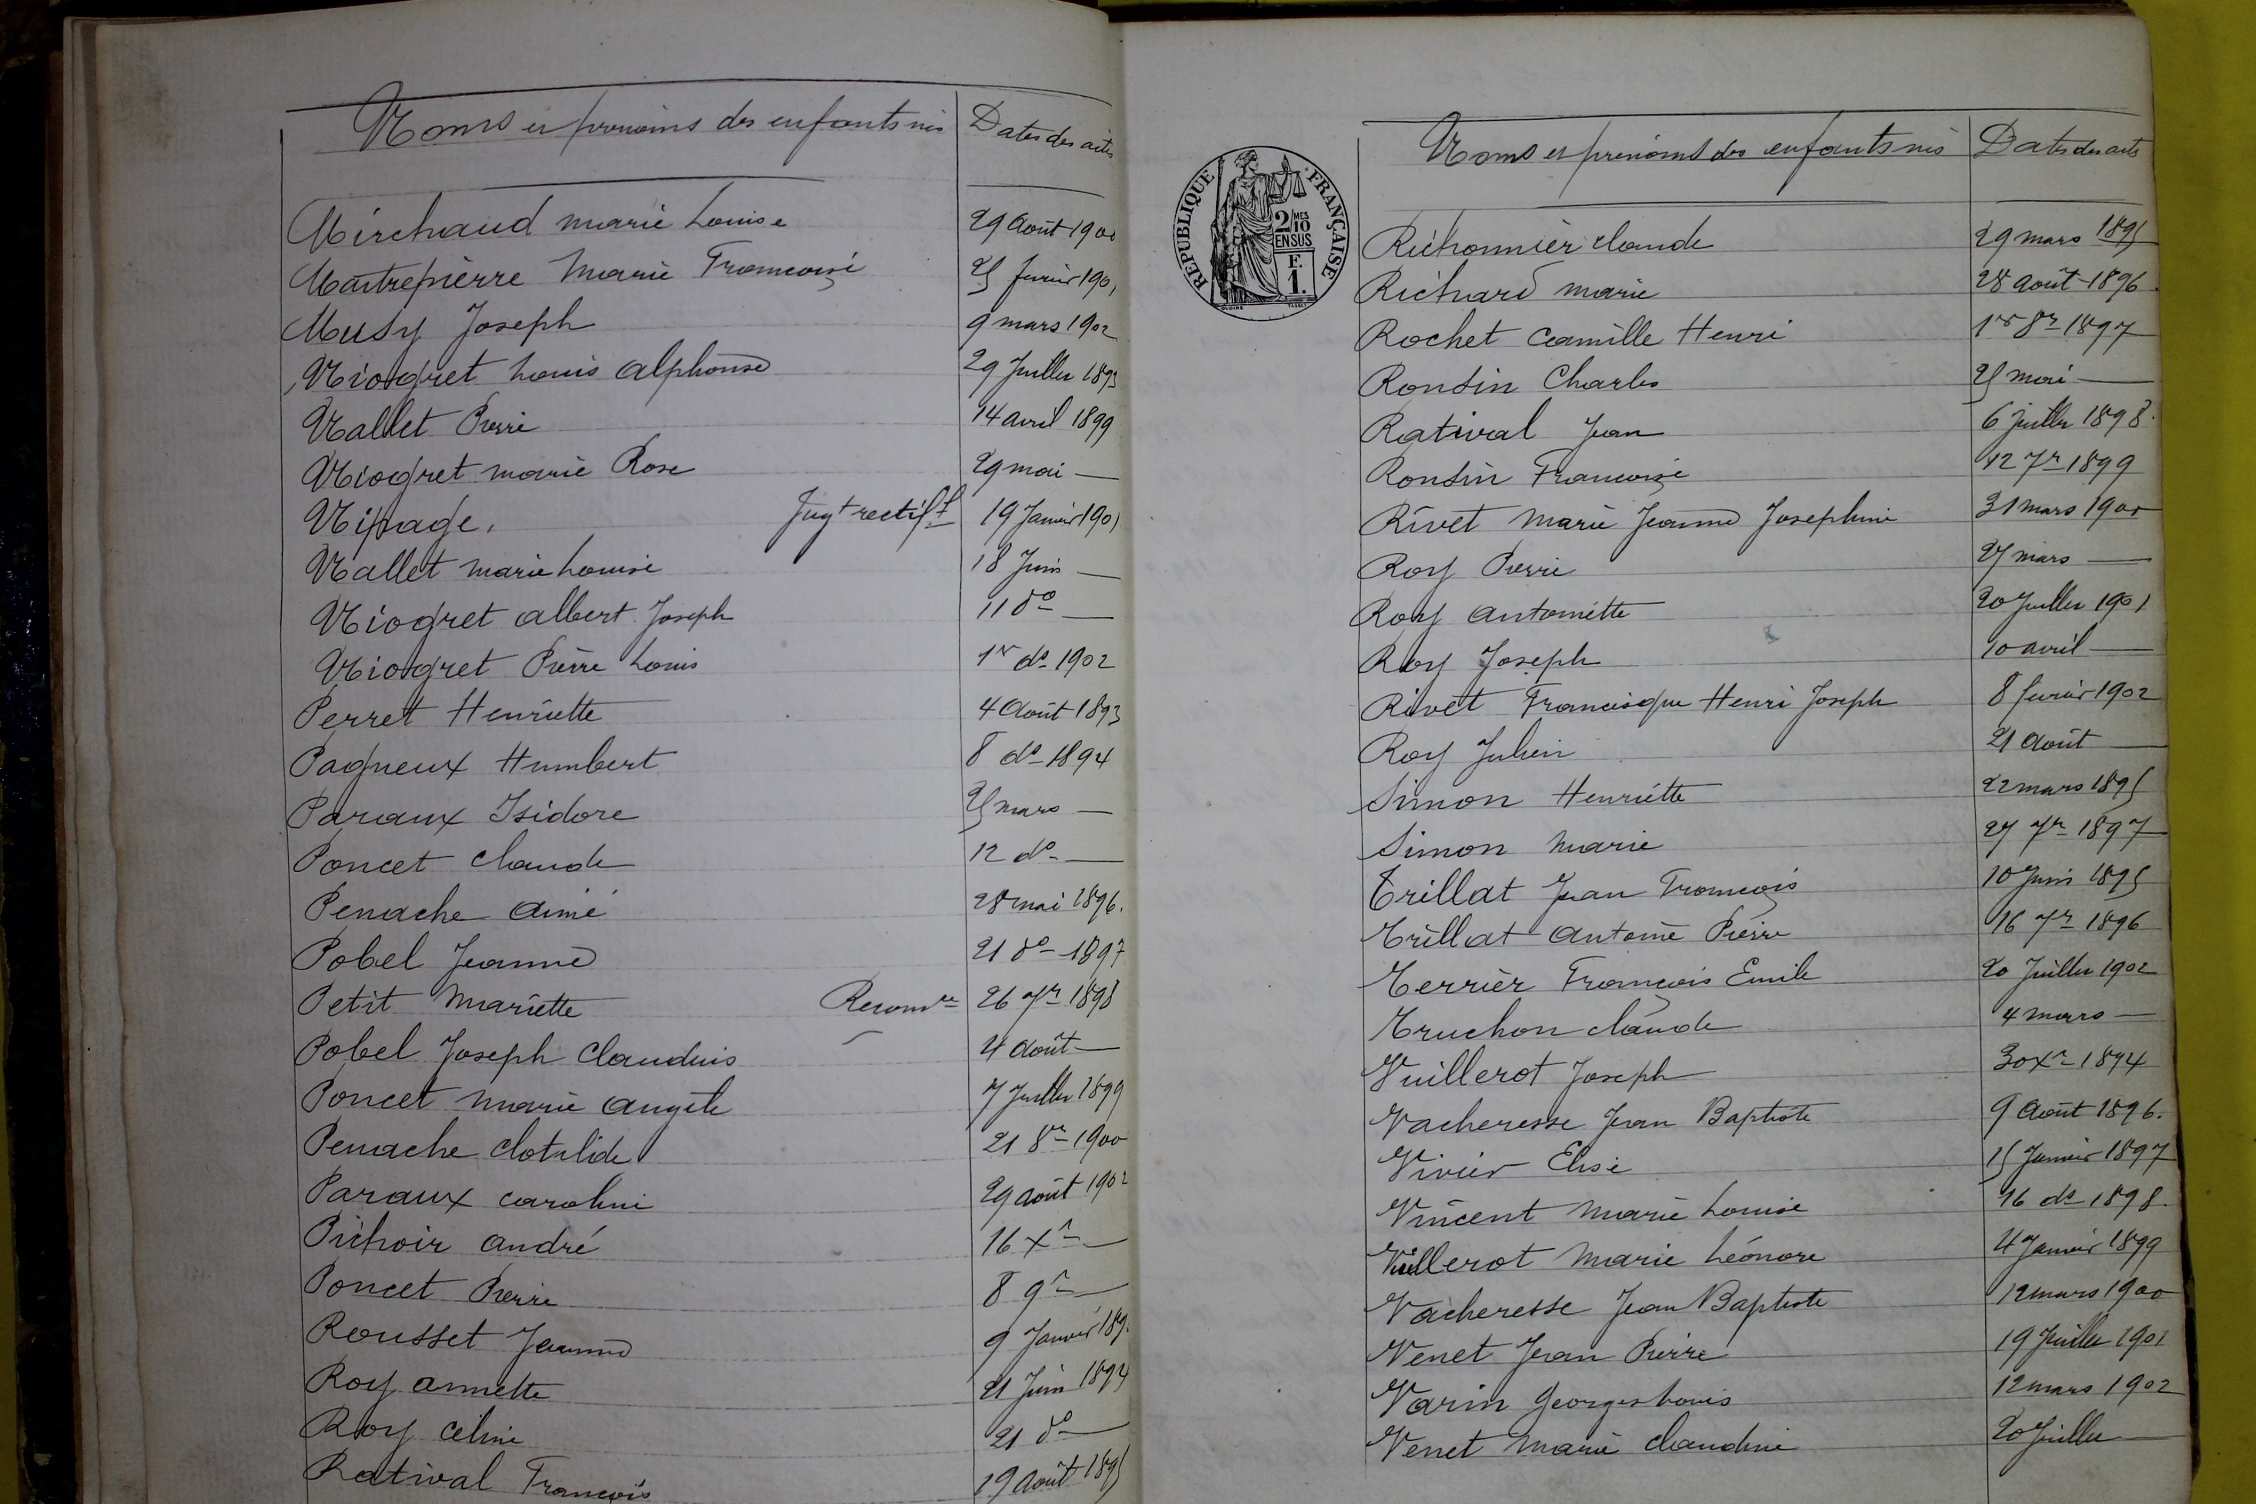 Noms et prénoms des enfants nés Dates des actes
Mirchaud marie Louise 29 Août 1900
Maitrepierre Marie Francoise 25 fevrier 1901
Musy Joseph 9 mars 1902
Niogret Louis alphonse 29 Juillet 1893
Nallet Pierre 14 avril 1899
Niogret marie Rose 29 mai —
Nipage. Jugt rectift 19 Janvier 1901
Nallet marie Louise 18 Juin —
Niogret albert Joseph 11 do —
Niogret Pierre Louis 1er do 1902
Perret Henriette 4 Août 1893
Pagneux Humbert 8 do 1894
Paraux Isidore 25 mars —
Poncet claude 12 do —
Penache aimé 28 mai 1896.
Pobel Jeanne 21 do 1897
Petit Mariette 26 7re 1898
Pobel Joseph Claudius 4 Août —
Poncet marie angèle 7 Juillet 1899
Penache clotilde 21 8re 1900
Paraux caroline 29 août 1902
Pichoir andré 16 Xre —
Poncet Pierre 8 9re —
Rousset Jeanne 9 Janvier 189
Roy annette 21 Juin 1894
Roy céline 21 do —
Rativat François 19 Août 1895
RÉPUBLIQUE FRANÇAISE
2/10 MES
EN SUS
F.
1.
Noms et prénoms des enfants nés Dates des actes
Richonnier claude 29 mars 1895
Richard marie 28 août 1896.
Rochet camille Henri 1er 8re 1897
Rondin Charles 25 mai —
Rativat Jean 6 juillet 1898.
Rondin Francoise 12 7re 1899
Rivet Marie Jeanne Josephine 31 mars 1900
Roy Pierre 27 mars —
Roy antoinette 20 Juillet 1901
Roy Joseph 10 avril —
Rivet Francisque Henri Joseph 8 fevrier 1902
Roy Julien 21 Août —
Simon Henriette 22 mars 1895
Simon marie 27 7re 1897
Trillat Jean François 10 Juin 1895
Trillat antoine Pierre 16 7re 1896
Terrier François Emile 20 Juillet 1902
Truchon claude 4 mars —
Vuillerot Joseph 30 Xre 1894
Vacheresse Jean Baptiste 9 Août 1896.
Vivier Elise 15 Janvier 1897
Vincent Marie Louise 16 do 1898.
Vuillerot Marie Léonore 4 Janvier 1899
Vacheresse Jean Baptiste 12 mars 1900
Venet Jean Pierre 19 Juillet 1901
Varin Georges Louis 12 mars 1902
Venet Marie claudine 20 Juillet —